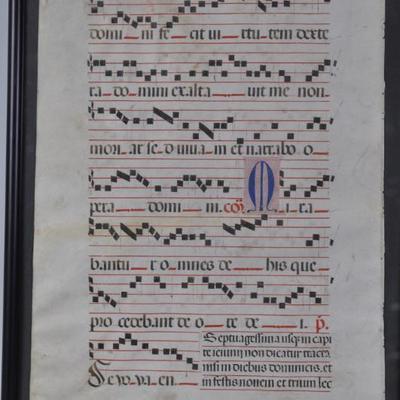 domi ni fe cit ui rtu tem dexte
ra do mini exalta uit me non
mori ar se d uiua m et narrabo o
pera domi ni. cõ. M i ra
bantu r o mnes de his que
pro cedebant de o re de i. p̃.
Septuagessima usq; in capi
te ieiunij non dicatur
nisi in diebus dominicis, et
in festis nouem et trium lec
Seuouaen